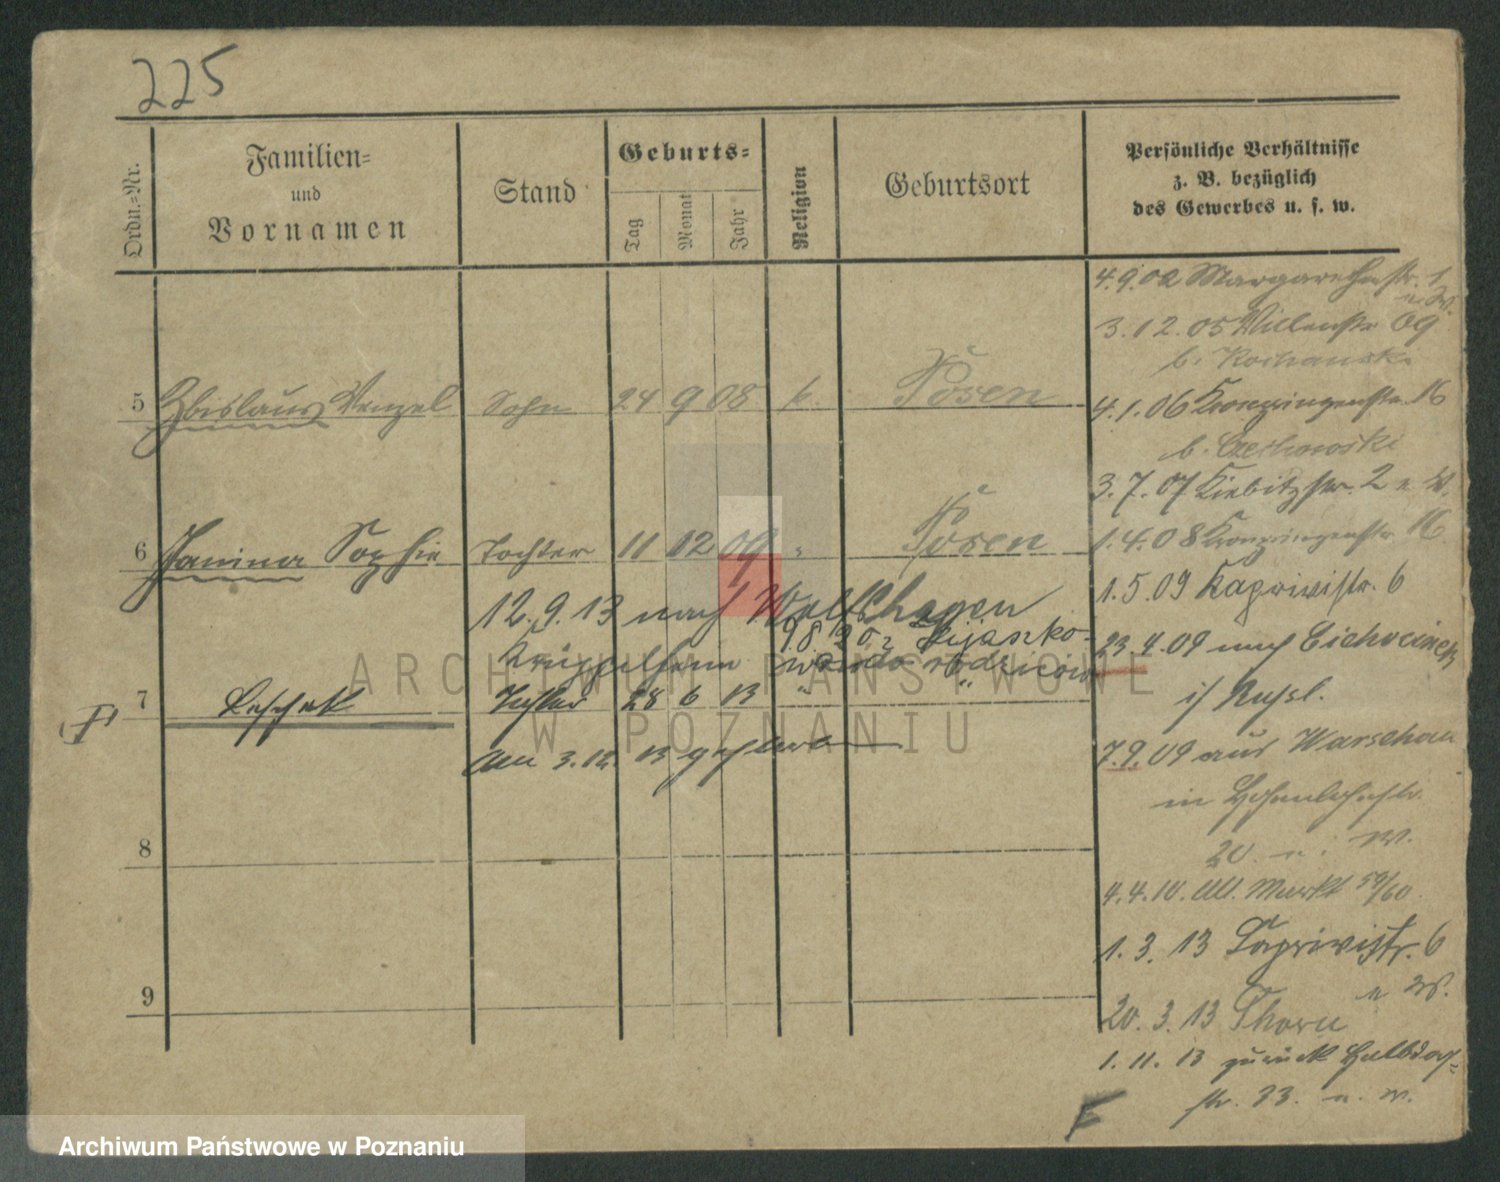 225
Ordn.-Nr.
Familien-
und
Vornamen
Stand
Geburts-
Tag
Monat
Jahr
Religion
Geburtsort
Persönliche Verhältnisse
z. B. bezüglich
des Gewerbes u. s. w.
4.9.02 Margarethenstr. 1
u. W.
3.12.05 Villenstr 69
b. Kochanski
5 Zbislaus Wenzel Sohn 24 9 08 k. Posen
4.1.06 Kronprinzenstr. 16
b. Czechowski
3.7.07 Kiebitzstr. 2 u. W.
6 Janina Sophie Tochter 11 12 09 " Posen
1.4.08 Kronprinzenstr. 16
1.5.09 Kaprivistr. 6
12.9.13 nach Wolfshagen
9.8.20 z
Krüppelheim
rodziców
23.4.09 nach Ciechocinek
i/ Russl.
7 Leschek Tochter 28 6 13 " "
am 3.12.13 gestorben
7.9.09 aus Warschau
in Hohenlohestr.
20. u. W.
8
4.4.10. Alt. Markt 59/60
1.3.13 Caprivistr. 6
u W.
9
20.3.13 Thorn
1.11.13 zurück Halbdorf-
str. 33. u. W.
ARCHIWUM PAŃSTWOWE
W POZNANIU
Archiwum Państwowe w Poznaniu